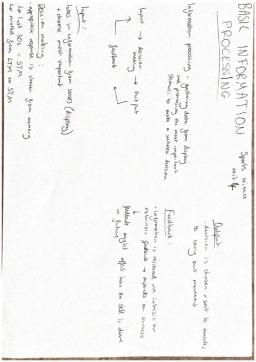 BASIC INFORMATION
PROCESSING
sports science
unit 4
Information processing - gathering data from display
and processing the most important
stimuli to make a suitable decision
Input → decision
making → output
feedback
Input:
- takes in information from senses (display)
+ choose most important
Decision making:
- appropriate response is chosen from memory
to last 30s - STM
LTM to STM
Output:
- decision is chosen + sent to muscles
to carry out movement
Feedback:
- information is received via intrinsic or
extrinsic feedback → depends on success
feedback might affect how the skill is done
in future